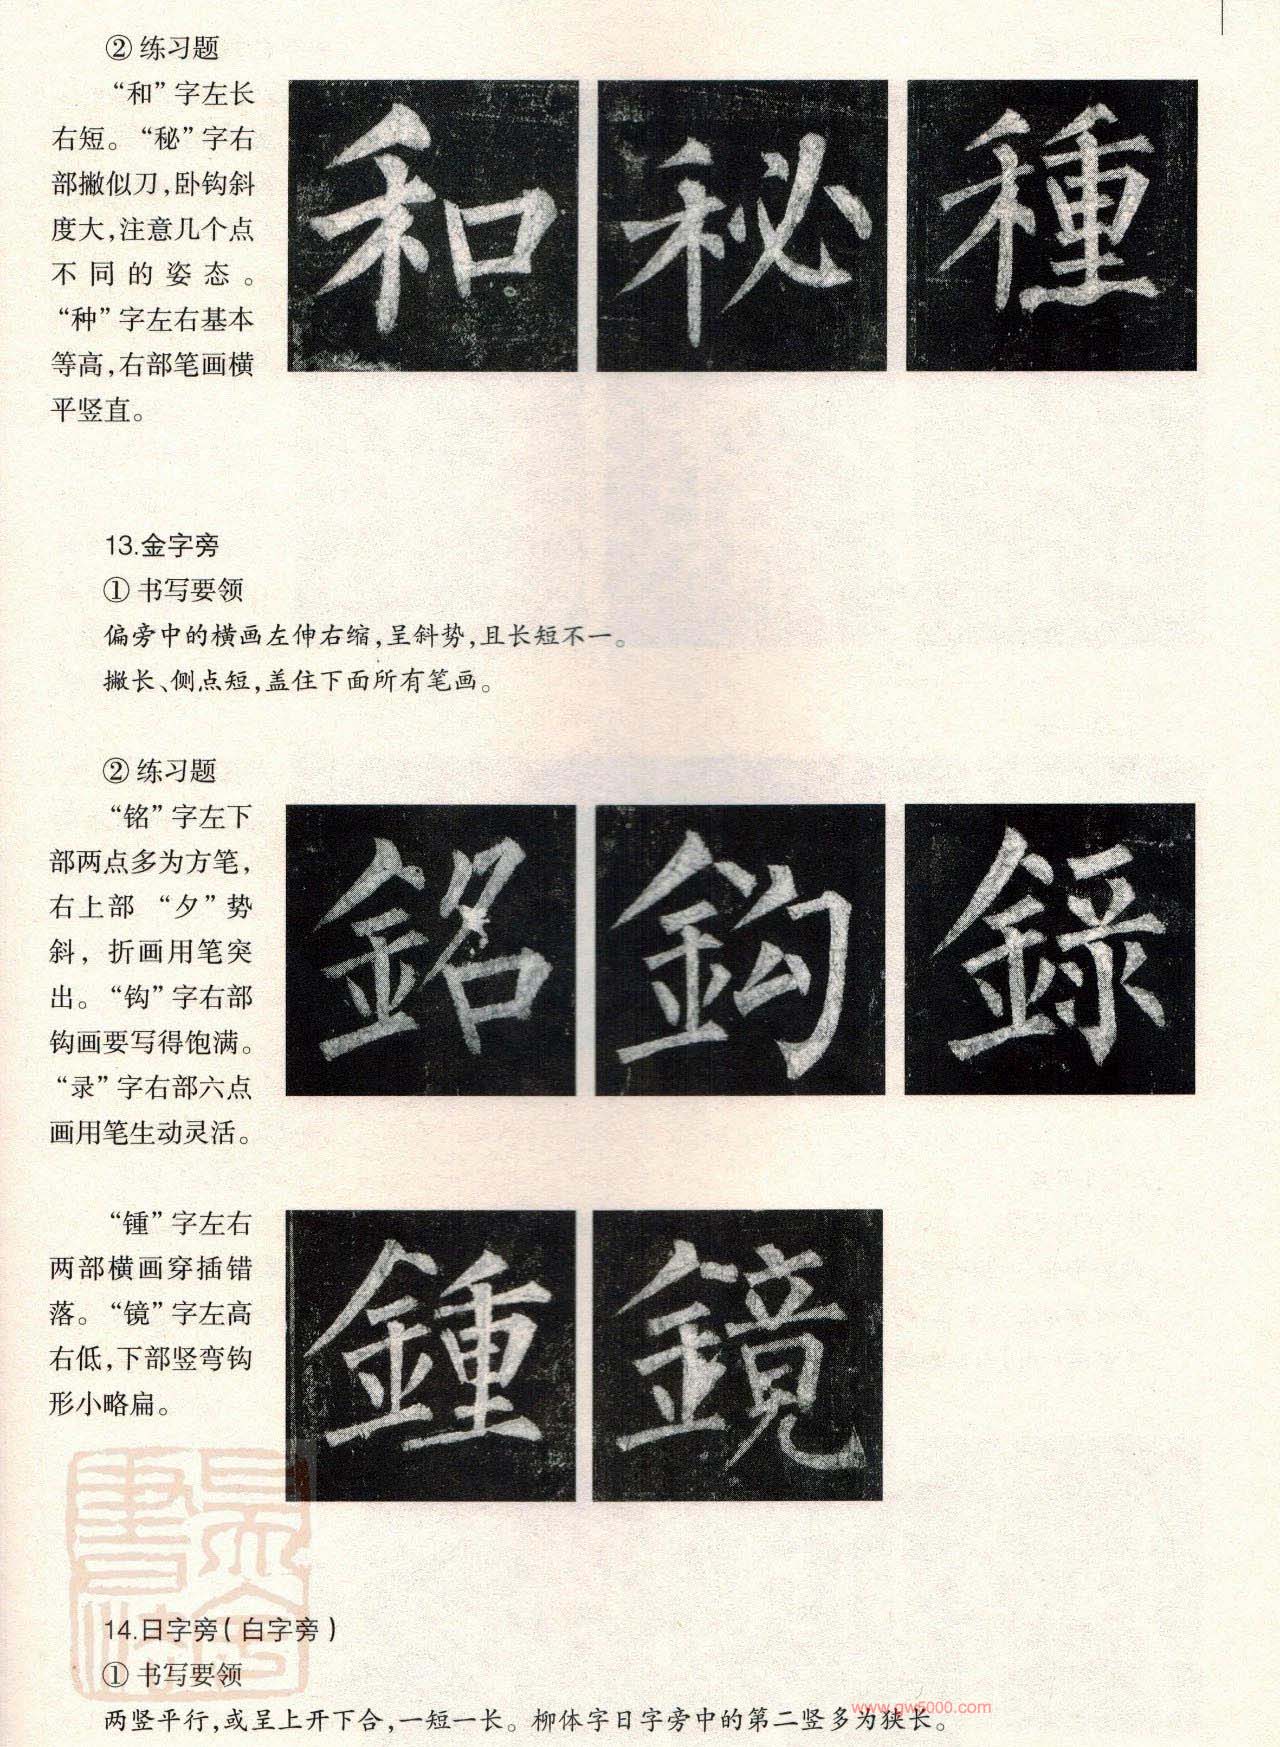 ② 练习题
“和”字左长
右短。“秘”字右
部撇似刀,卧钩斜
度大,注意几个点
不同的姿态。
“种”字左右基本
等高,右部笔画横
平竖直。
和 秘 種
13.金字旁
① 书写要领
偏旁中的横画左伸右缩,呈斜势,且长短不一。
撇长、侧点短,盖住下面所有笔画。
② 练习题
“铭”字左下
部两点多为方笔,
右上部“夕”势
斜，折画用笔突
出。“钩”字右部
钩画要写得饱满。
“录”字右部六点
画用笔生动灵活。
銘 鈎 録
“锺”字左右
两部横画穿插错
落。“镜”字左高
右低,下部竖弯钩
形小略扁。
鍾 鏡
14.日字旁(白字旁)
① 书写要领
两竖平行,或呈上开下合,一短一长。柳体字日字旁中的第二竖多为狭长。
www.gw5000.com